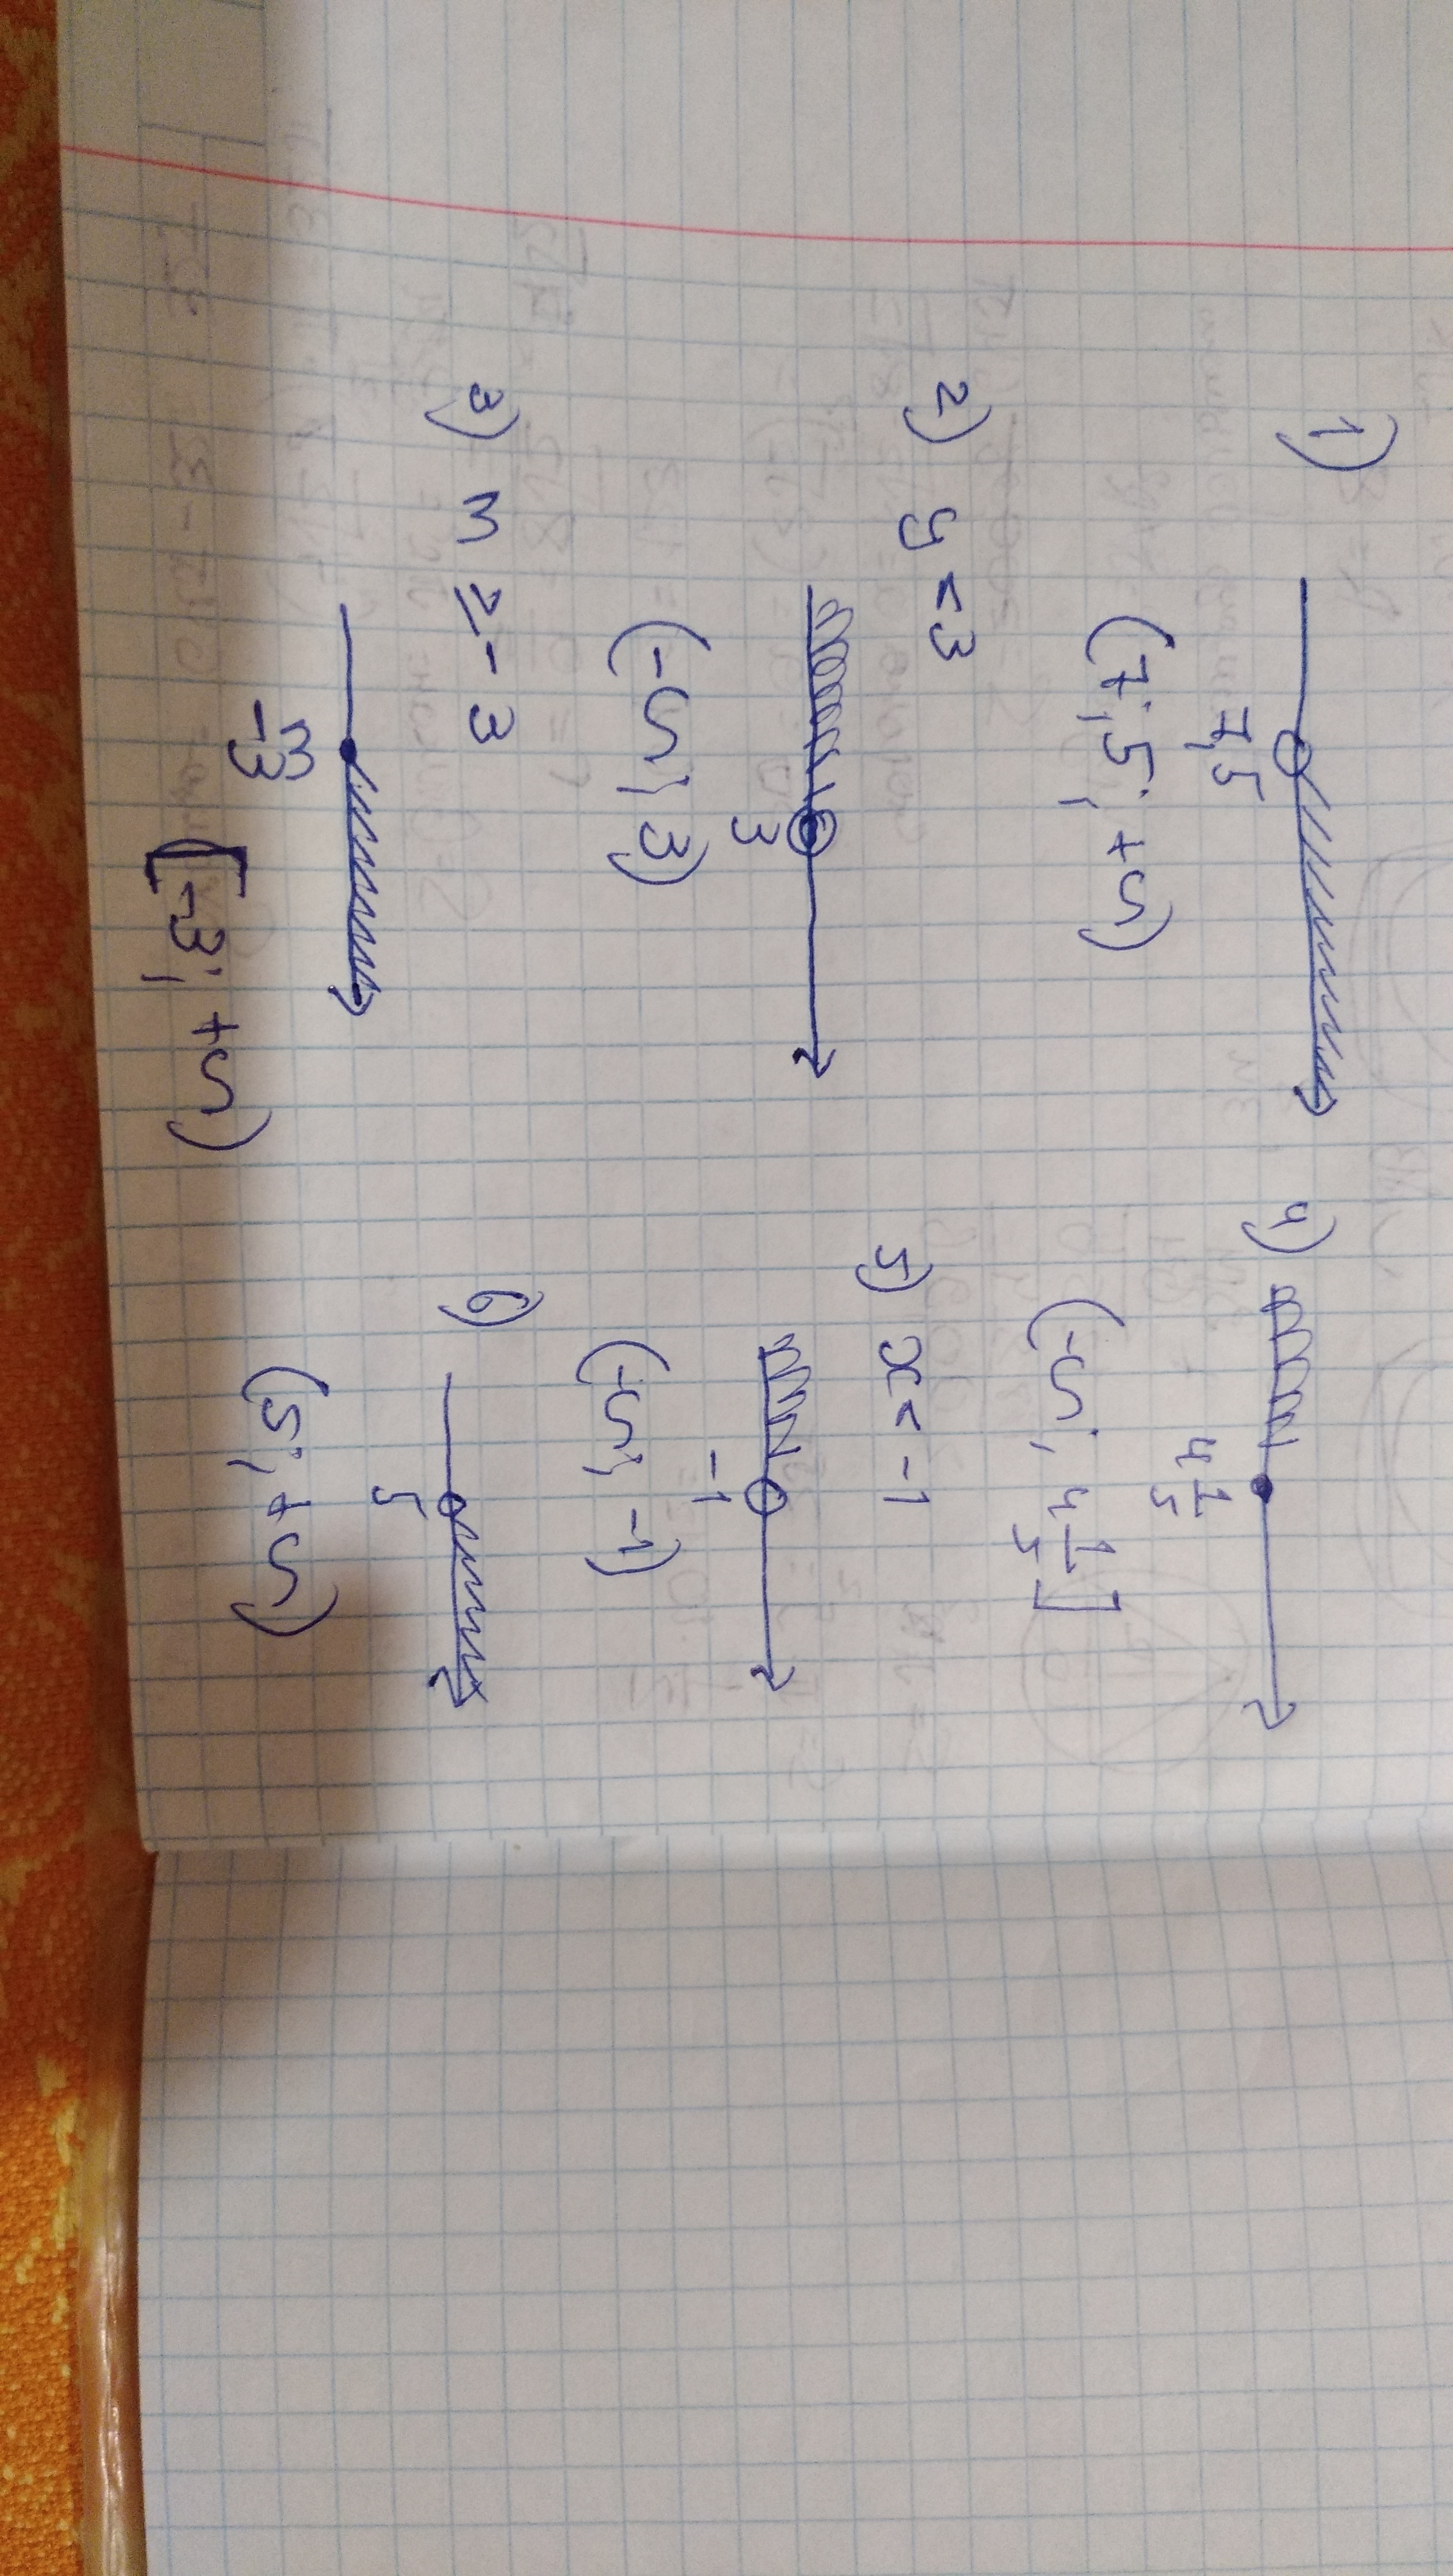 1)
7,5
(7,5; +∽)
2) y < 3
3
(-∽; 3)
3) m ≥ -3
m
-3
[-3; +∽)
4)
4 1/5
(-∽; 4 1/5]
5) x < -1
-1
(-∽; -1)
6)
5
(5; +∽)